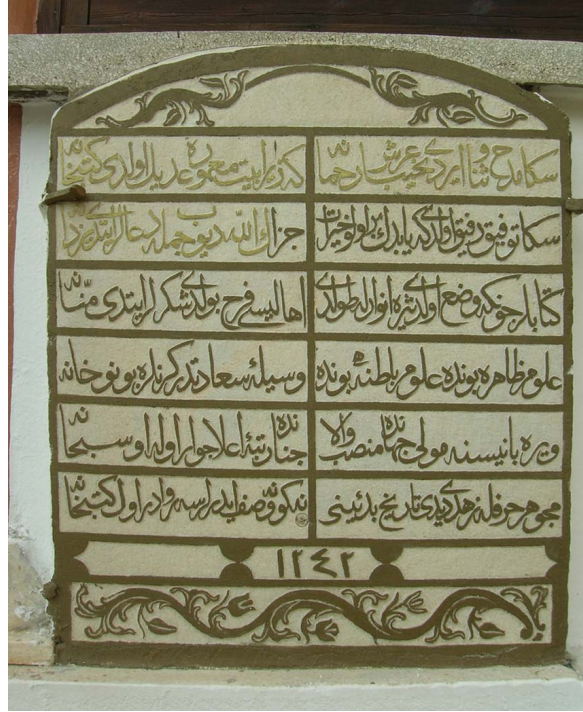 سكا مدح و ثنا ايردى عجب عرش رحمانه
كه زيرا بيت معموره عديل اولدى كتبخانه
سكا توفيق رفيق اولدى كه يابدك بولو خيراتى
جزاك الله ديوب جمله دعالر ايتدى يزدانه
كتابلر چونكه وضع اولدى انوارله طولدى
اهاليسى فرح بولدى شكرلر ايتدى منّانه
علوم ظاهره بونده علوم باطنه بونده
وسيلهٔ سعادتدر كرنلره بو نو خانه
ويره بانيسنه مولى جهانده منصب والا
جنانده رتبهٔ اعلا جوار اوله او سبحانه
مجوهر حرفله زهدى ديدى تاريخ بدئينى
نه كونه وصف ايدرلرسه روادر اول كتبخانه
١٢٤٢